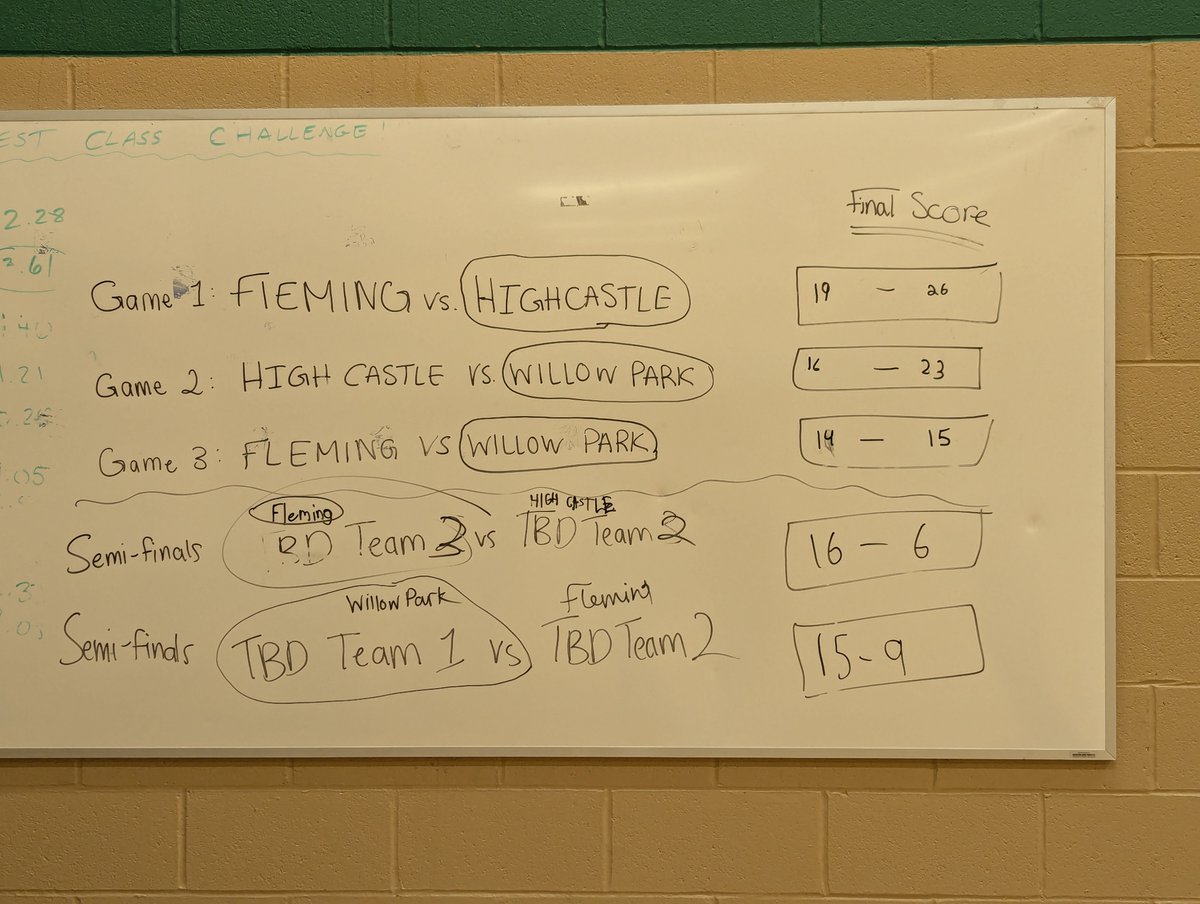 EST CLASS CHALLENGE!
2.28
2.61
Final Score
Game 1: FLEMING VS. HIGHCASTLE 19 - 26
Game 2: HIGH CASTLE VS. WILLOW PARK 16 - 23
Game 3: FLEMING VS WILLOW PARK 14 - 15
Fleming HIGH CASTLE
Semi-finals TBD Team 3 vs TBD Team 2 16 - 6
Willow Park Fleming
Semi-finals TBD Team 1 vs TBD Team 2 15-9